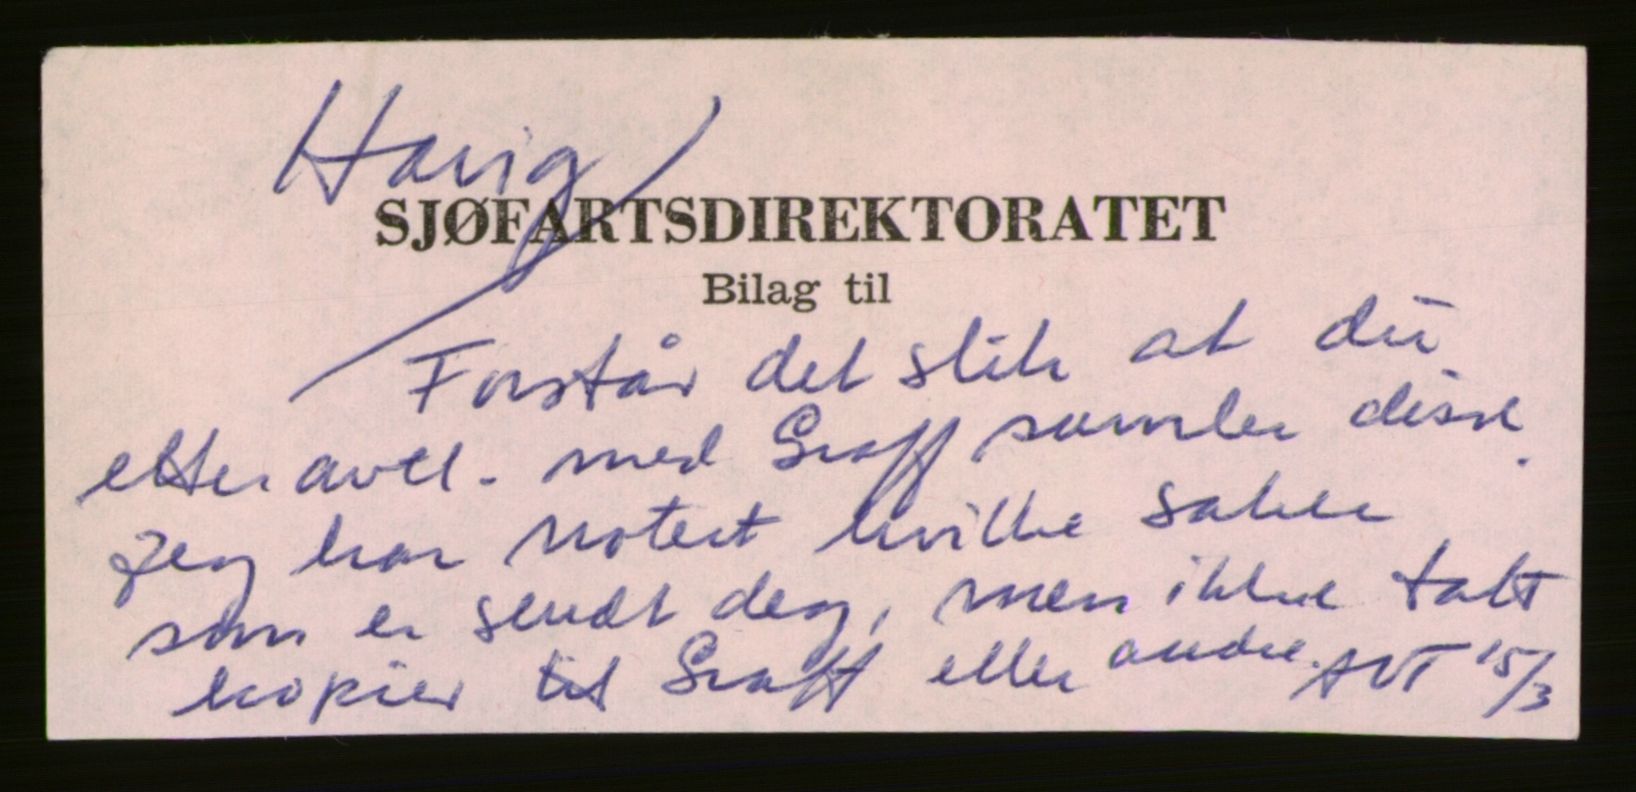 Havig
SJØFARTSDIREKTORATET
Bilag til
Forstår det slik at du
etter avtl. med Graff samler disse.
Jeg har notert hvilke saker
som er sendt deg, men ikke tatt
kopier til Graff eller andre. AVT 15/3